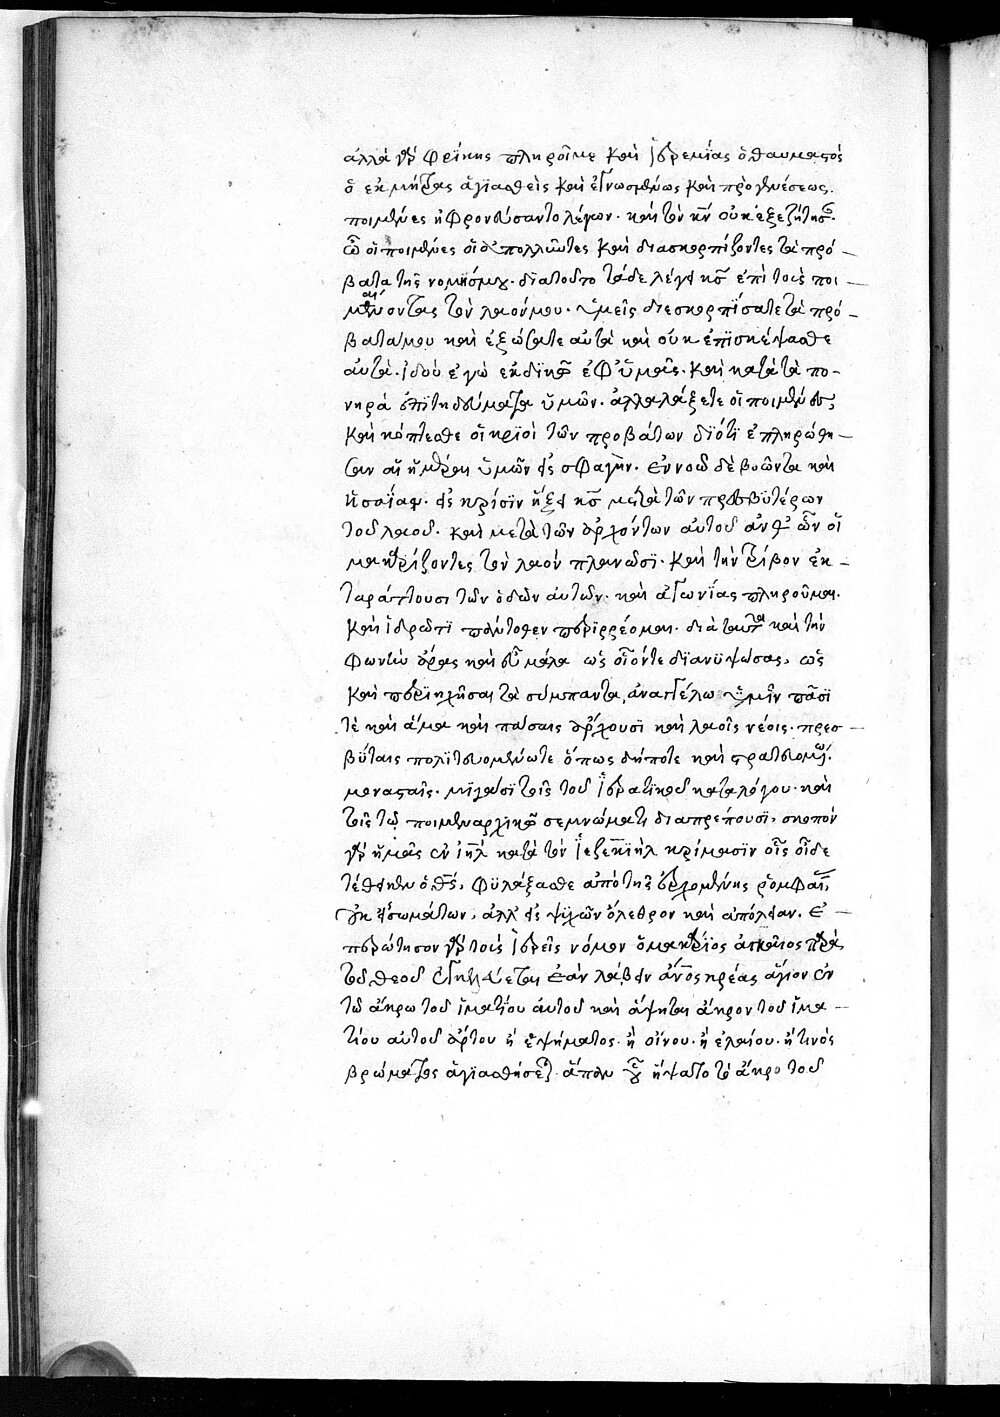 ἀλλὰ γὰρ φρίκης πληροῖ με καὶ ἱερεμίας ὁ θαυμαστὸς
ὁ ἐκ μήτρας ἁγιασθεὶς καὶ ἐγνωσμένως καὶ πρὸ γενέσεως.
ποιμένες ἠφρονεύσαντο λέγων· καὶ τὸν κν οὐκ ἐξεζήτησαν.
ὦ οἱ ποιμένες οἱ ἀπολλῦντες καὶ διασκορπίζοντες τὰ πρό
βατα τῆς νομῆς μου· διατοῦτο τάδε λέγει κς ἐπὶ τοὺς ποι
μαίνοντας τὸν λαόν μου· ὑμεῖς διεσκορπίσατε τὰ πρό
βατα μου καὶ ἐξώσατε αὐτὰ καὶ οὐκ ἐπϊσκέψασθε
αὐτά· ἰδοὺ ἐγὼ ἐκδικῶ ἐφ' ὑμᾶς· καὶ κατὰ τὰ πο
νηρὰ ἐπιτηδεύματα ὑμῶν· ἀλλαλάξετε οἱ ποιμένες
καὶ κόπτεσθε οἱ κριοὶ τῶν προβάτων διότι ἐπληρώθη
σαν αἱ ἡμέραι ὑμῶν εἰς σφαγήν· ἐννοῶ δὲ βοῶντα καὶ
ἡσαΐαν· εἰς κρίσϊν ἥξει κς μετὰ τῶν πρεσβϋτέρων
τοῦ λαοῦ· καὶ μετὰ τῶν ἀρχόντων αὐτοῦ ἀνθ' ὧν οἱ
μακαρίζοντες τὸν λαὸν πλανῶσϊ· καὶ τὴν τρίβον ἐκ
ταράττουσι τῶν ὁδῶν αὐτῶν· καὶ ἀγωνίας πληροῦμαι·
καὶ ἱδρῶτϊ πάντοθεν περϊρρέομαι· διὰ ταῦτα καὶ τὴν
φωνὴν ἄρας καὶ εὖ μάλα ὡς οἷόντε διανϋψώσας, ὡς
καὶ περϊηχῆσαι τὰ σύμπαντα, ἀναγγέλω ὑμῖν πᾶσϊ
τὲ καὶ ἅμα καὶ πάσαις ἄρχουσϊ καὶ λαοῖς νέοις· πρεσ
βύταις πολϊτευομένωτε ὅπως δήποτε καὶ στρατευομένων
μονασταῖς· μϊγάσϊ τοῖς τοῦ ἱερατικοῦ καταλόγου· καὶ
τοῖς τῷ ποιμεναρχικῶ σεμνώματι διαπρέπουσϊ, σκοπὸν
γὰρ ἡμᾶς ἐν ιηλ κατὰ τὸν ἰεζεκϊὴλ κρίμασϊν οἷς οἶδε
τέθεικεν ὁ θς, φϋλάξασθε ἀπὸ τῆς ἐρχομένης ῥομφαίας
οὐκ εἰς σωμάτων, ἀλλ' εἰς ψϋχῶν ὄλεθρον καὶ ἀπόλειαν. ἐ
περώτησον γὰρ τοὺς ἱερεῖς νόμον ὁ μακάρϊος ἀγγαῖος παρὰ
τοῦ θεοῦ ἐγκελεύεται ἐὰν λάβειν ἄνος κρέας ἅγιον ἐν
τῶ ἄκρω τοῦ ἱματίου αὐτοῦ καὶ ἅψηται ἄκρον τοῦ ἱμα
τίου αὐτοῦ ἄρτου ἢ ἑψήματος· ἢ οἴνου· ἢ ἐλαίου· ἤ τινὸς
βρώματος ἁγϊασθήσεται· ἅπαν οὗ ἥψατο τὸ ἄκρο τοῦ